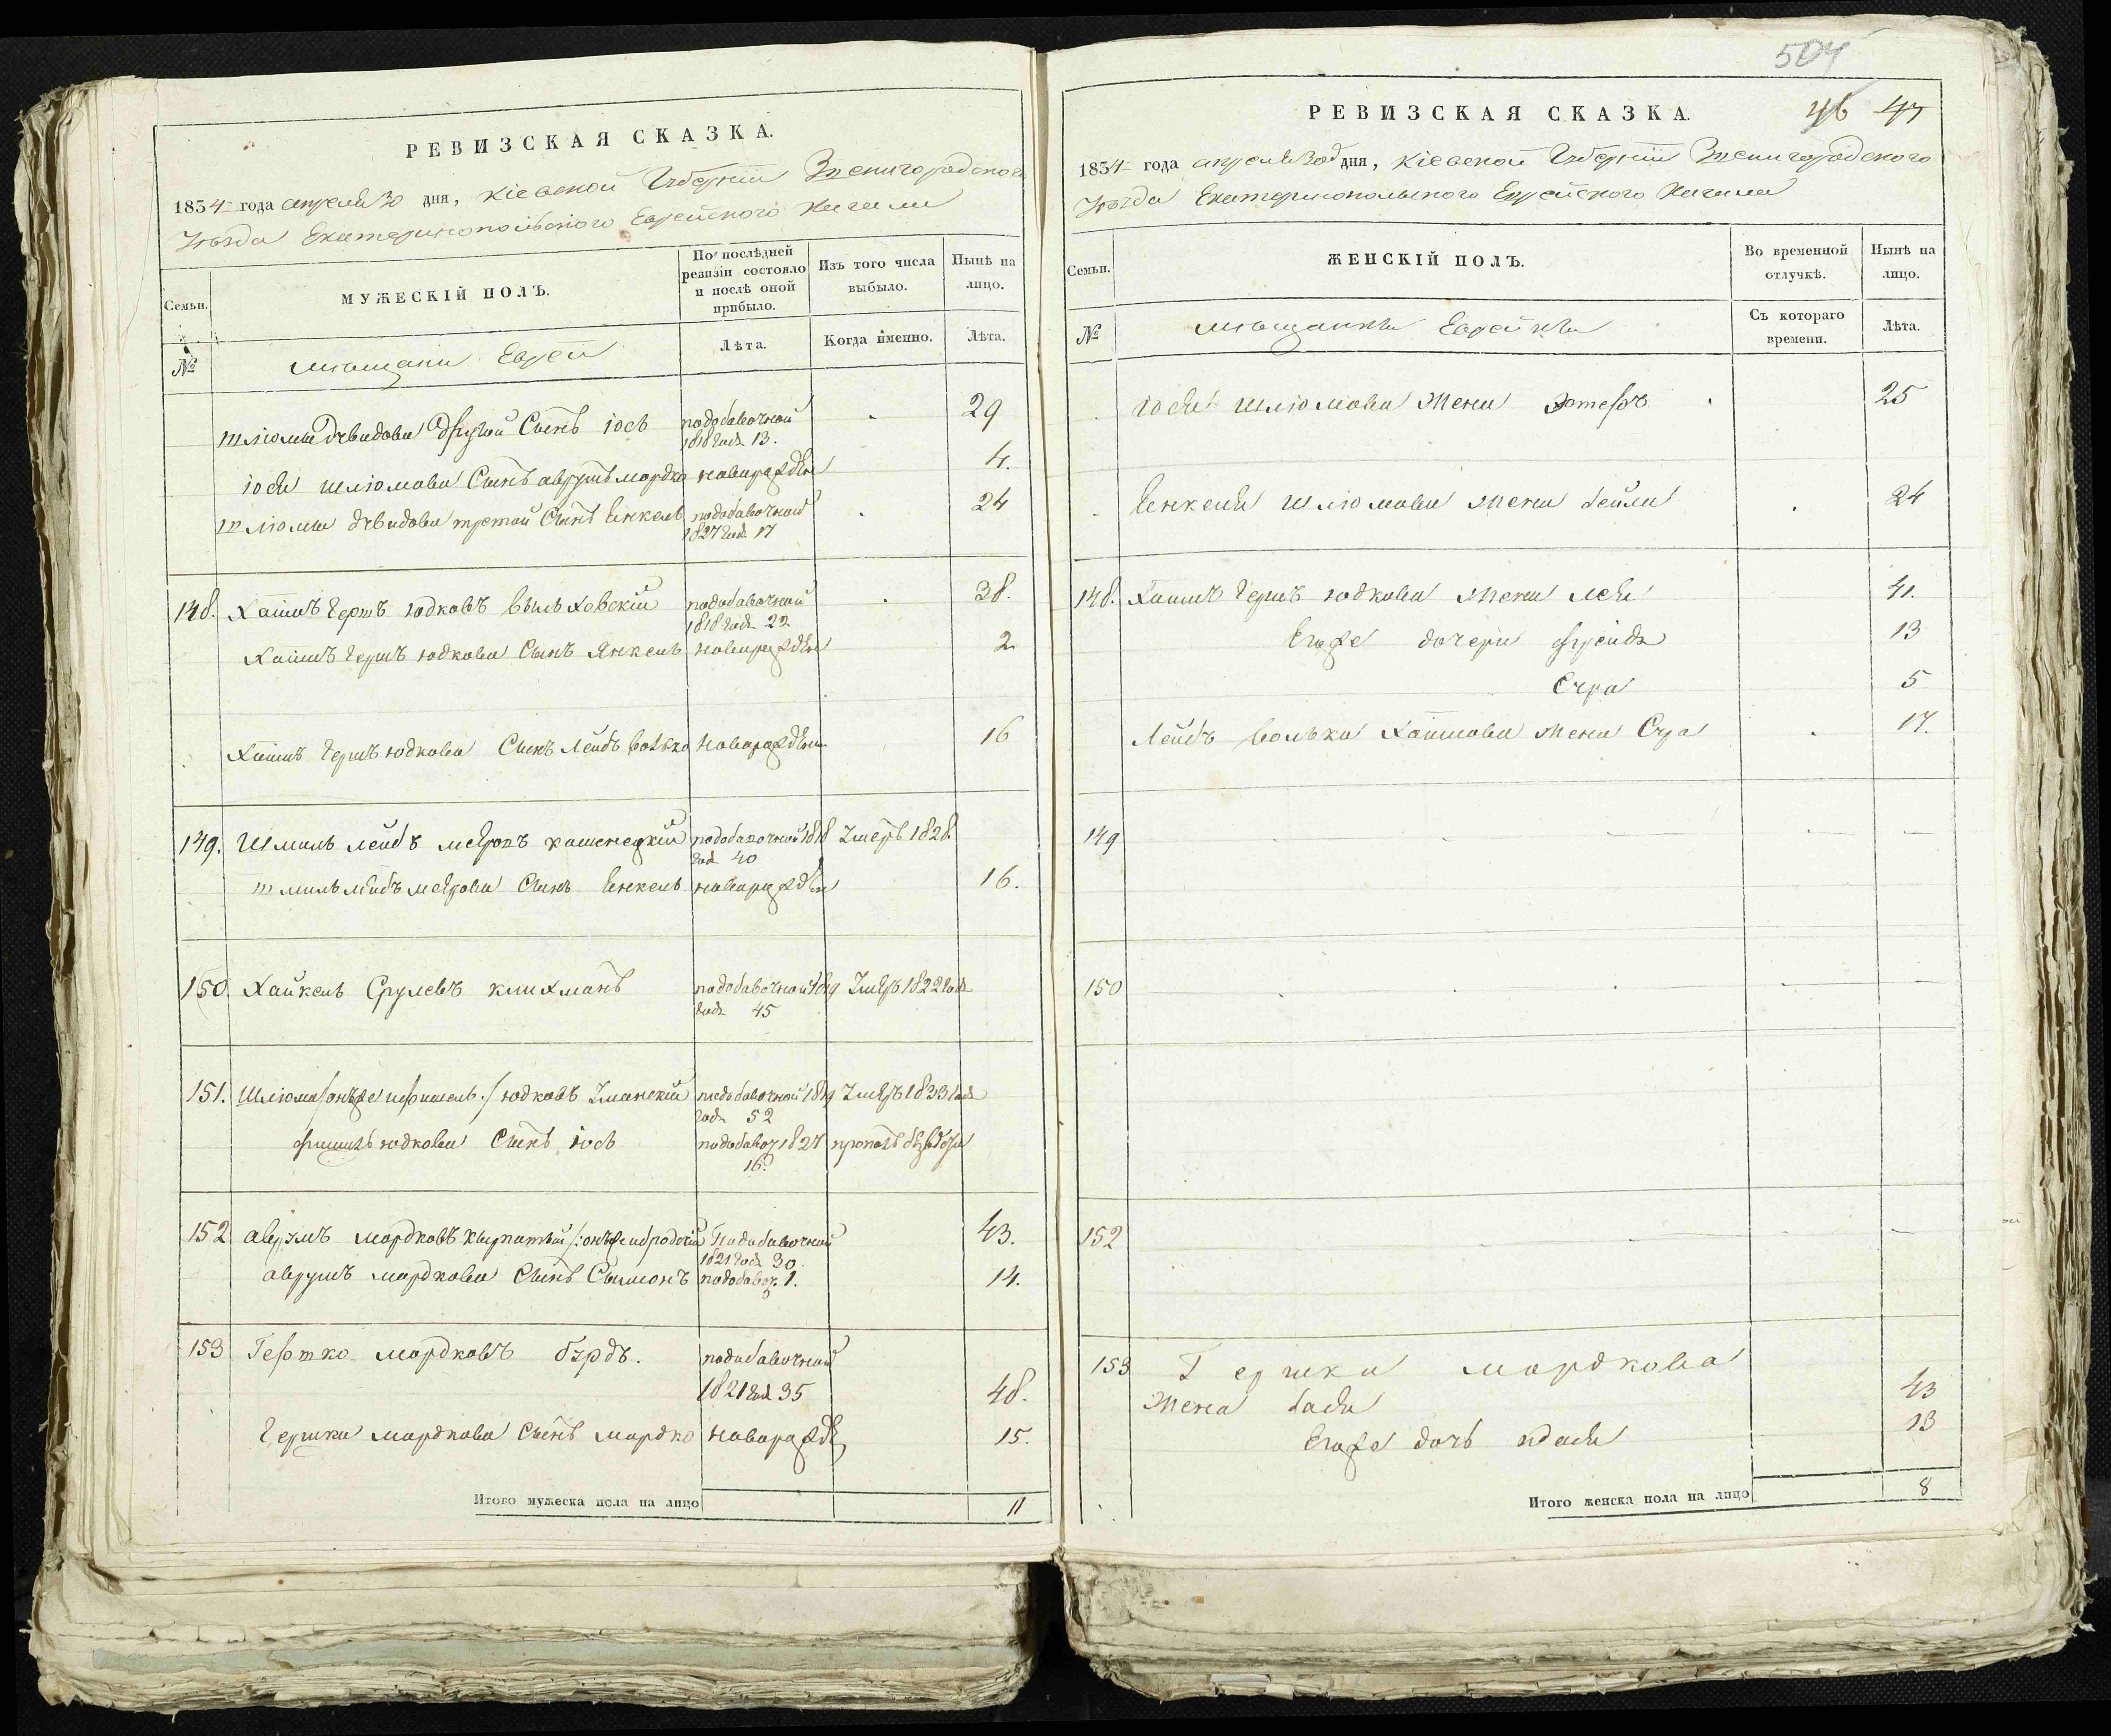 РЕВИЗСКАЯ СКАЗКА.
1834 года апреля 30 дня, Кіевской Губерніи Звенигородского
Уезда Екатеринопольского Еврейского Кагала
Семьи.
МУЖЕСКІЙ ПОЛЪ.
По послѣдней ревизіи состояло и послѣ оной прибыло.
Изъ того числа выбыло.
Нынѣ на лицо.
№
мещани Евреи
Лѣта.
Когда именно.
Лѣта.
Шлюмы Дувидова Другой Сынъ Іось подобавочной 29
1818 года 13.
Іося Шлюмова Сынъ аврумъ мордко новорожден 4.
Шлюмы дувидова третой Сынъ Енкель подобавочной 24
1827 год 17
148. Хаимъ Гершъ юдковъ Вильховскій подобавочной 38.
1818 года 22
Хаимъ Гершъ юдкова Сынъ Янкель новорожден 2
Хаимъ Гершъ юдкова Сынъ Лейбъ Волько новорожден 16
149. Шмиль лейбъ меяровъ каменецкій подобавочной 1818 Умеръ 1828.
года 40
шмиль лейбъ меярова Сынъ Енкель новорожден 16.
150 Хайкель Срулевъ клихманъ подобавочной 1819 Умеръ 1822 года
года 45
151. Шлюма /онъже ифишель./ юдковъ Уманскій подобавочной 1819 Умеръ 1833 года
года 52
фишель юдкова Сынъ іось подобавоч 1827
16.
152 аврумъ мордковъ /:онъже Подобавочной 43.
1821 года 30.
аврумъ мордкова Сынъ Сымонъ подобавоч. 1. 14.
153 Гершко мордковъ бурдъ. подобавочной
1821 год 35 48.
Гершка мордкова Сынъ мордко новорожде 15.
Итого мужеска пола на лицо 11
504
46 47
РЕВИЗСКАЯ СКАЗКА.
1834 года апреля 30 дня, Кіевской Губерніи Звенигородского
Уезда Екатеринопольского Еврейского Кагала
Семьи.
ЖЕНСКІЙ ПОЛЪ.
Во временной отлучкѣ.
Нынѣ на лицо.
№
мещанки Еврейки
Съ котораго времени.
Лѣта.
Іося Шлюмова Жена 25
Енкеля Шлюмова Жена бейла 24
148. Хаимъ Гершъ юдкова Жена лея 41.
Егоже дочери фрейда 13
Сура 5
Лейбъ Волька Хаимова Жена Сура 17.
149
150
152
153 Гершка мордкова
Жена бася 43
Егоже дочь 13
Итого женска пола на лицо 8